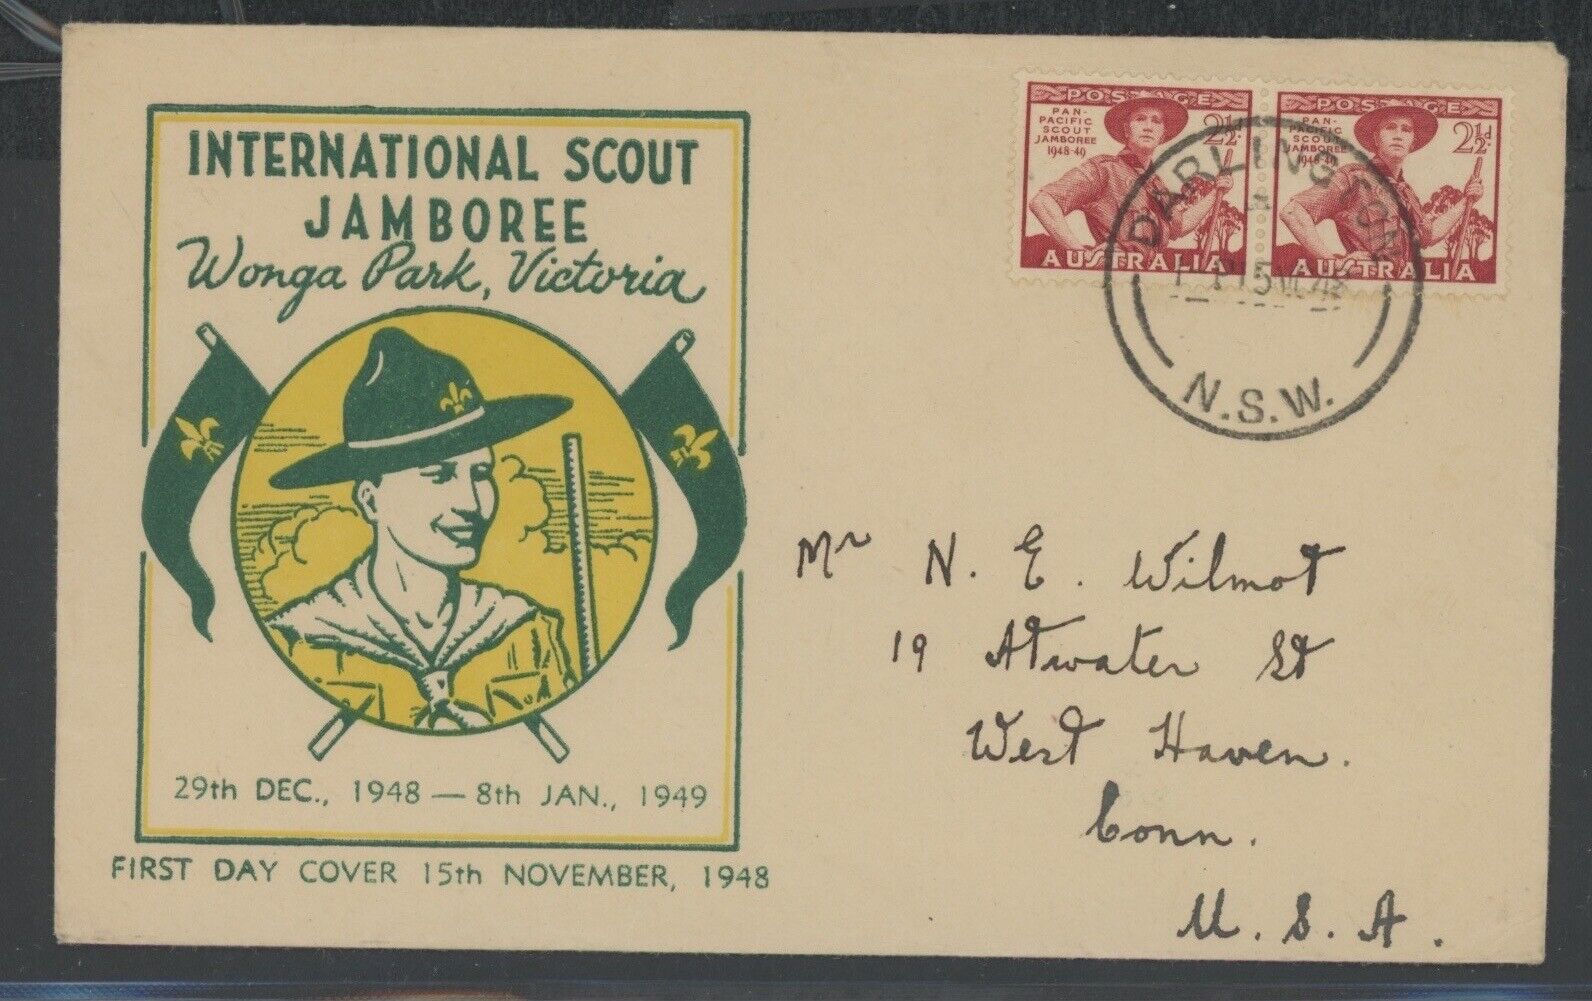 INTERNATIONAL SCOUT
JAMBOREE
Wonga Park, Victoria
29th DEC., 1948 — 8th JAN., 1949
FIRST DAY COVER 15th NOVEMBER, 1948
POSTAGE
PAN-
PACIFIC
SCOUT
JAMBOREE
1948-49
2½d.
AUSTRALIA
POSTAGE
PAN-
PACIFIC
SCOUT
JAMBOREE
1948-49
2½d.
AUSTRALIA
DARLINGTON
N.S.W.
Mr N. E. Wilmot
19 Atwater St
West Haven.
Conn.
U. S. A.